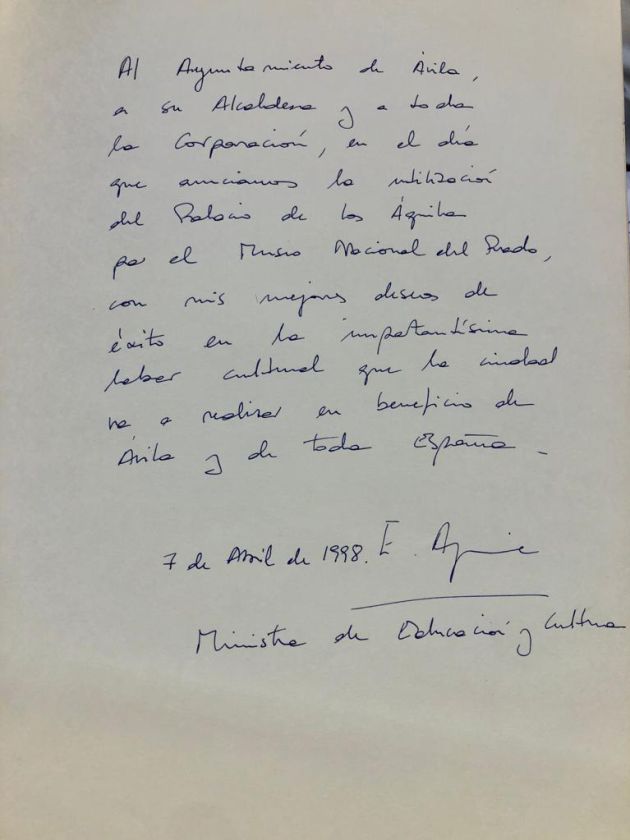 Al Ayuntamiento de Ávila,
a su Alcaldesa y a toda
la Corporación, en el día
que anunciamos la utilización
del Palacio de los Águila
por el Museo Nacional del Prado,
con mis mejores deseos de
éxito en la importantísima
labor cultural que la ciudad
va a realizar en beneficio de
Ávila y de toda España -
7 de Abril de 1998. E. Aguirre
Ministra de Educación y Cultura